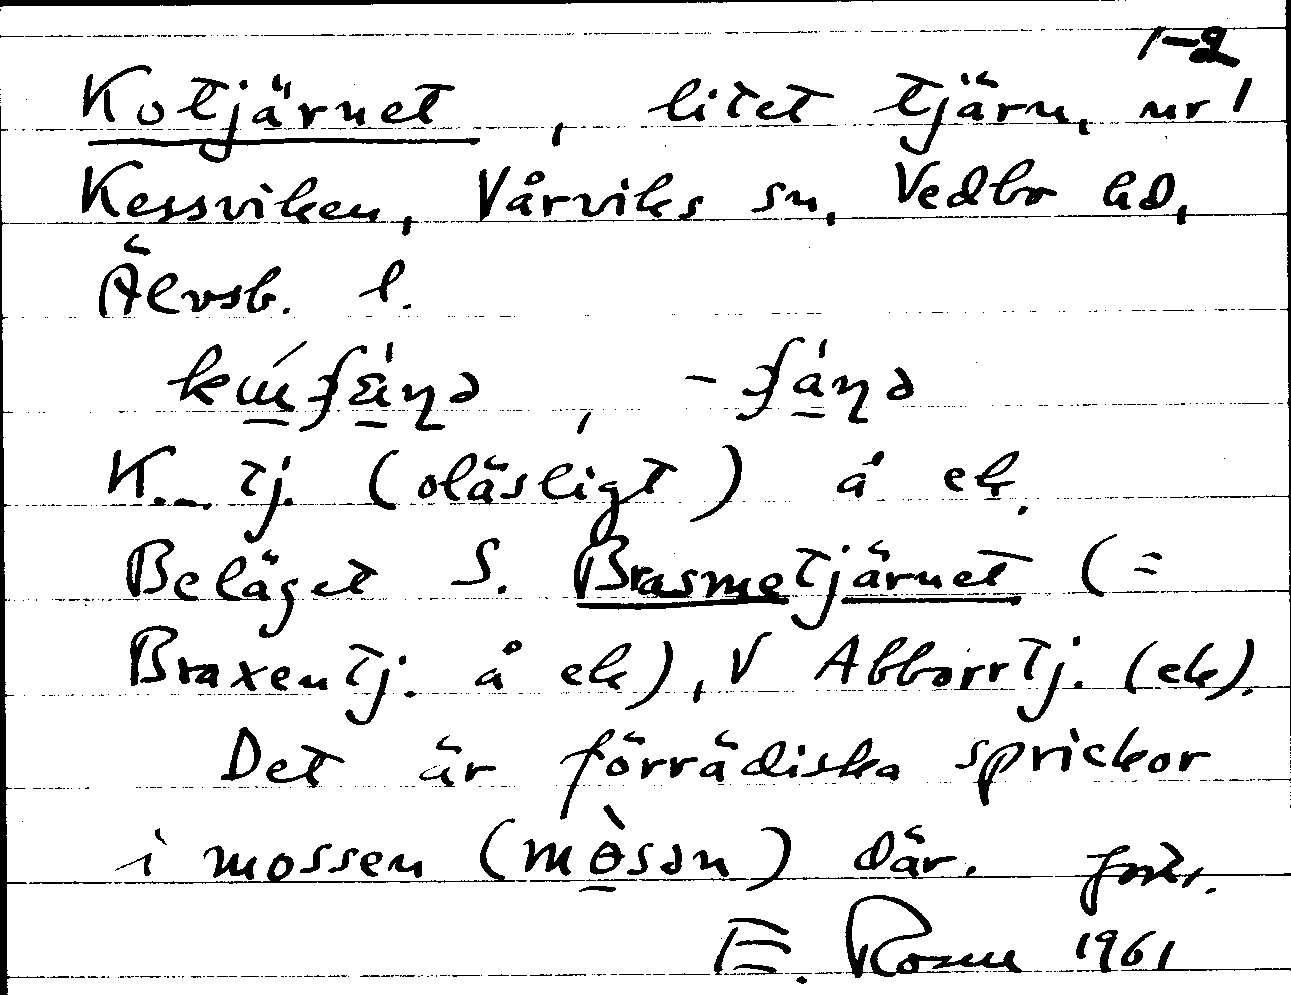 1-2
Kotjärnet, litet tjärn, nr 1
Kessviken, Vårviks sn, Vedbo hd,
Älvsb. l.
K... tj. (oläsligt) å ek.
Beläget S. Brasmetjärnet (=
Braxentj. å ek), V Abborrtj. (ek).
Det är förrädiska sprickor
i mossen (mòsən) där. forts.
E. Rosen 1961